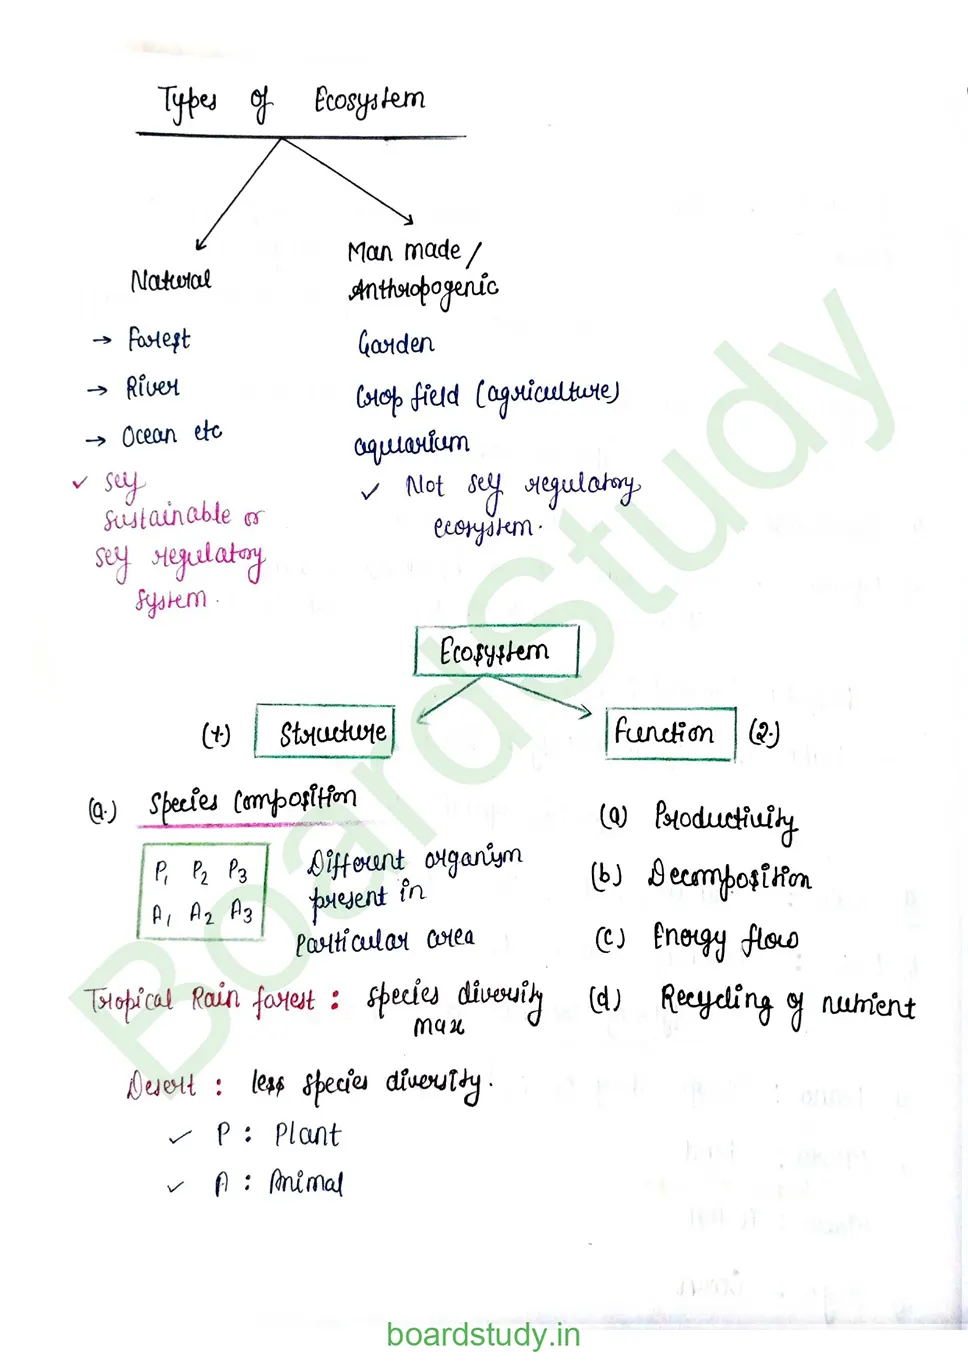 Types of Ecosystem
Natural
→ Forest
→ River
→ Ocean etc
✓ Self
sustainable or
self regulatory
system.
Man made /
Anthropogenic
Garden
Crop field (agriculture)
aquarium
✓ Not self regulatory
ecosystem.
Ecosystem
(1.) Structure
Function (2.)
(a.) Species Composition
P1 P2 P3
A1 A2 A3
Different organism
present in
particular area
Tropical Rain forest : species diversity
max
Desert : less species diversity.
✓ P : Plant
✓ A : Animal
(a) Productivity
(b) Decomposition
(c) Energy flow
(d) Recycling of nutrient
BoardStudy
boardstudy.in